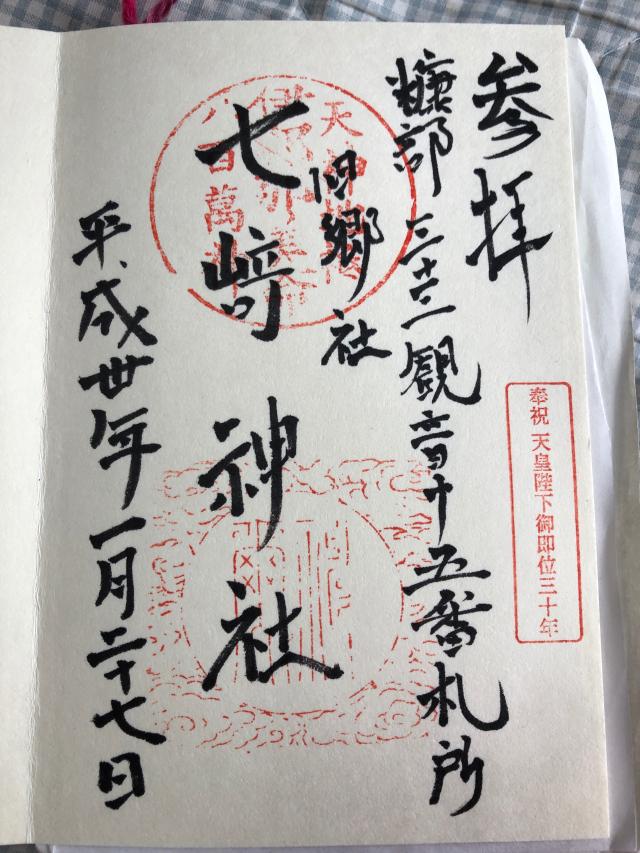 参拝
奉祝 天皇陛下御即位三十年
糠部三十三観音十五番札所
旧郷社
七﨑神社
八百萬
平成丗年一月二十七日